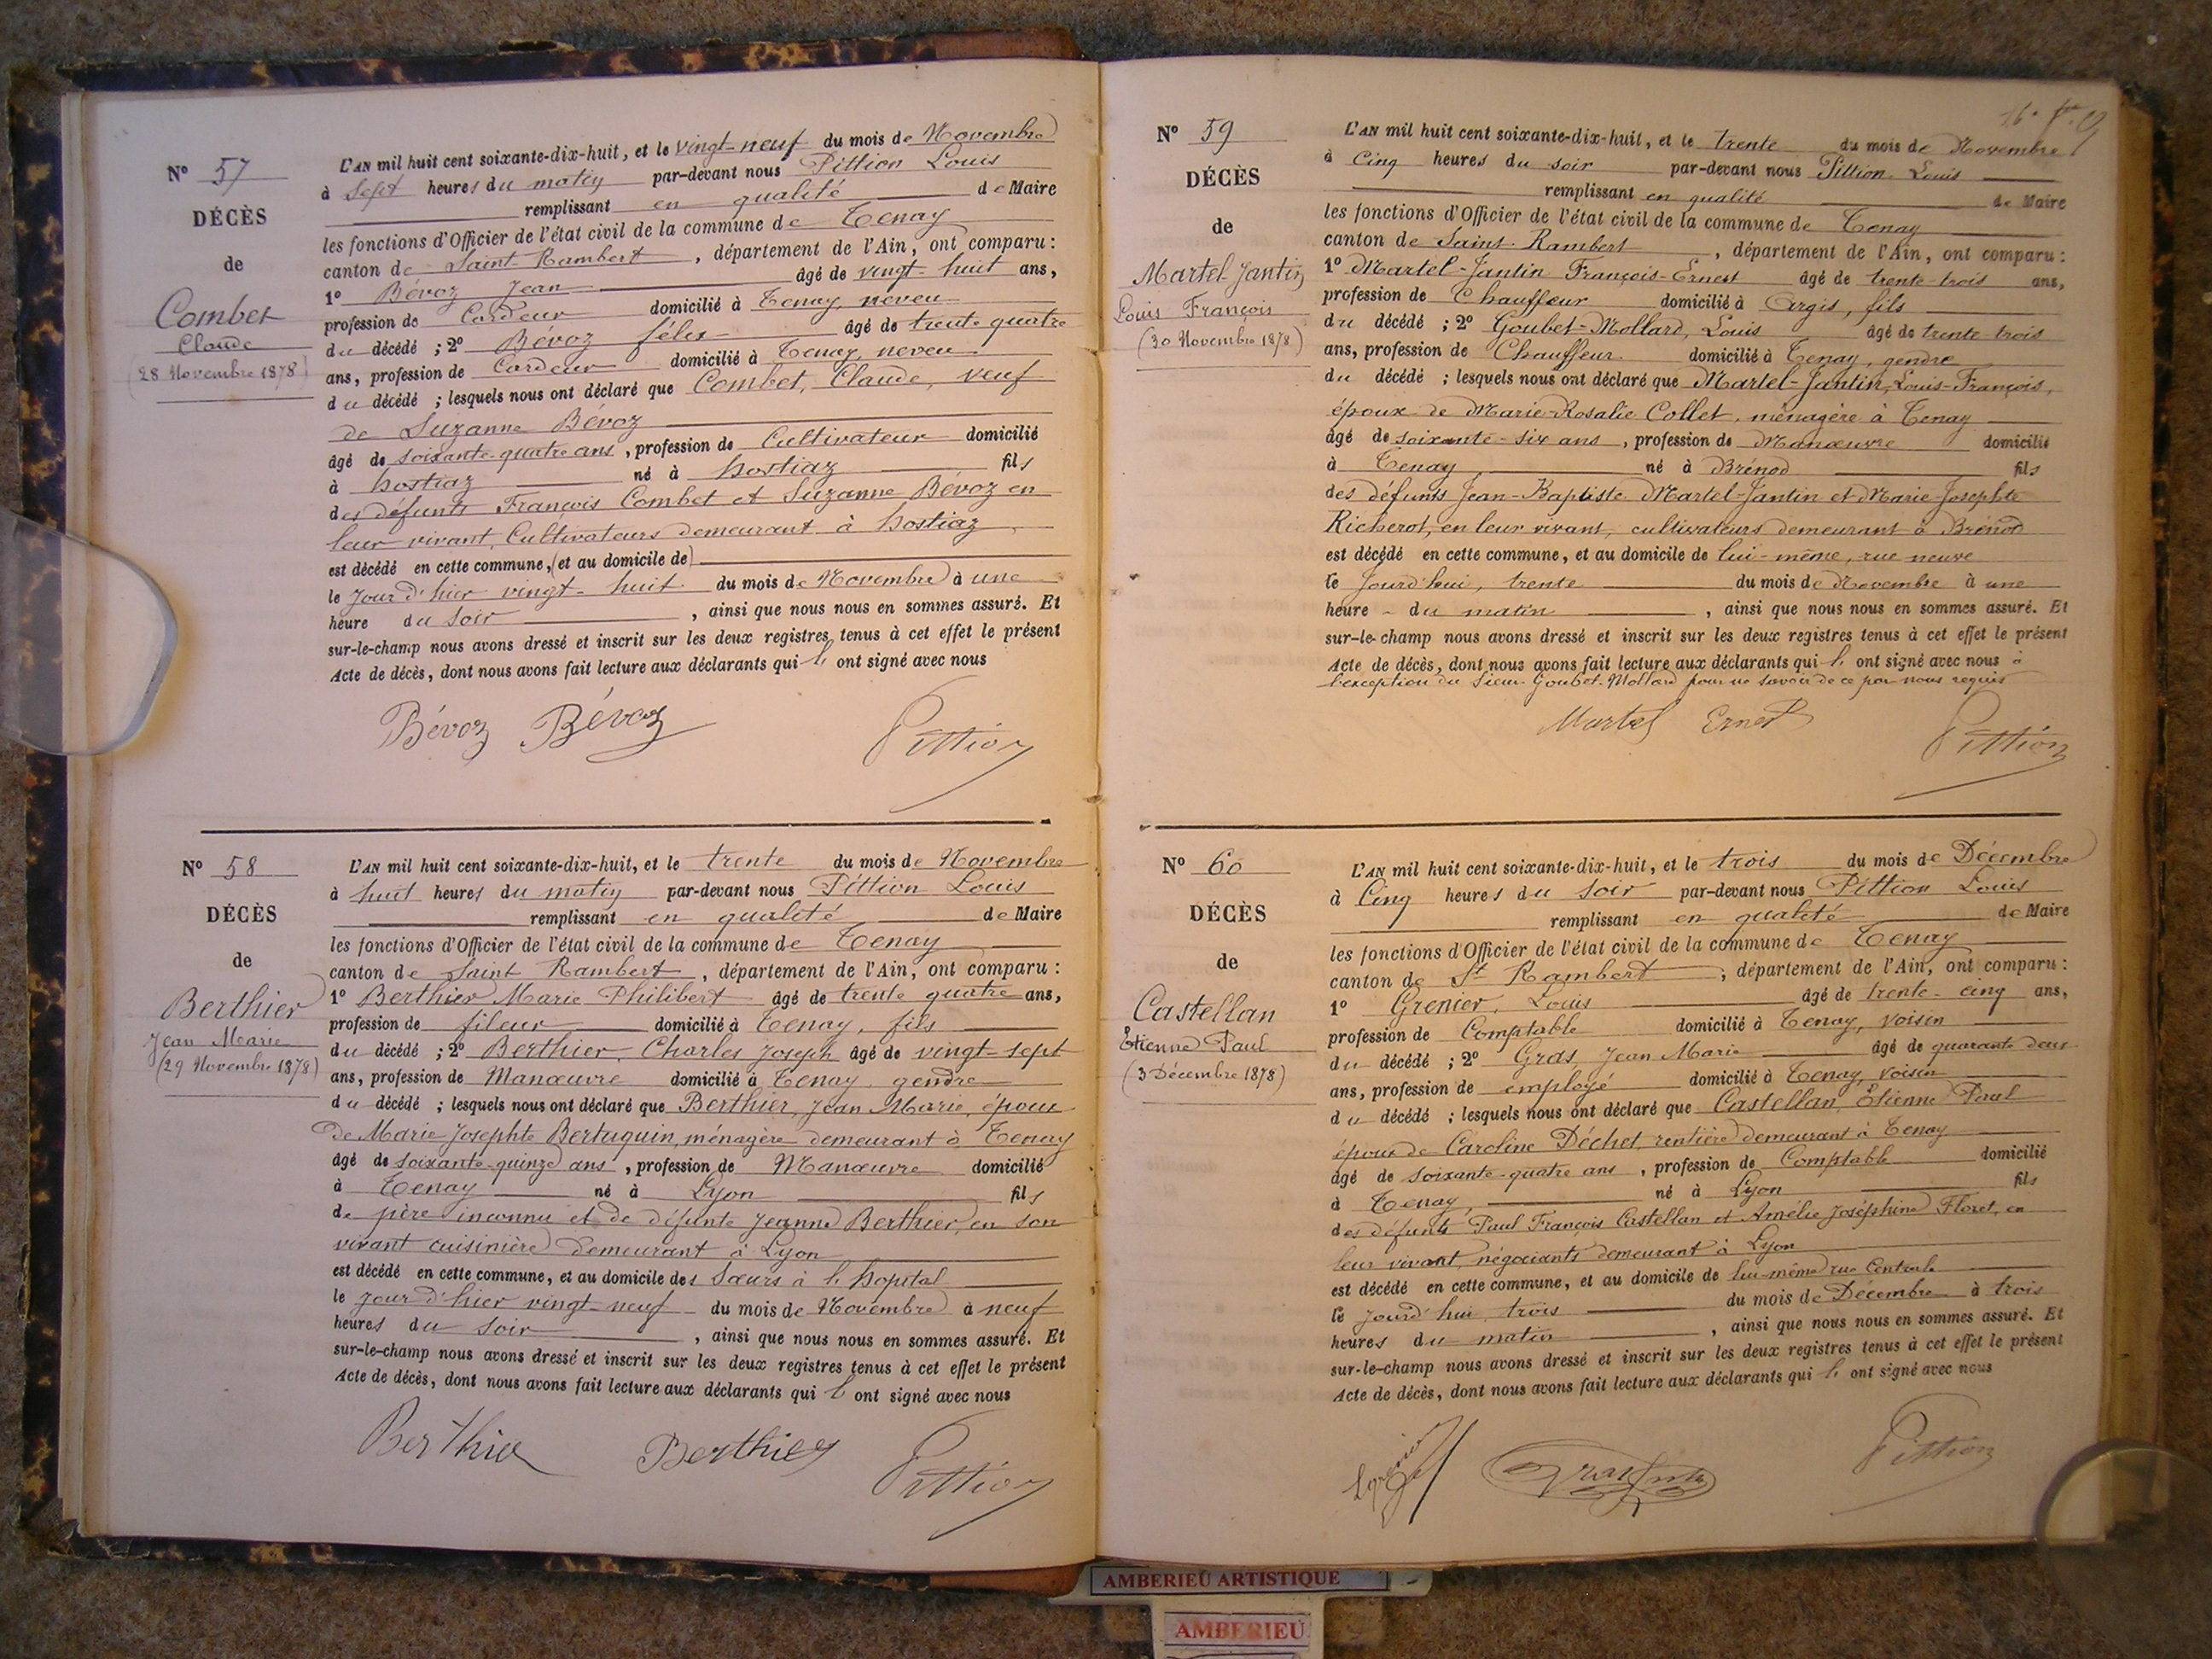 Nº 57
DÉCÈS
de
Combet
Claude
(28 Novembre 1878)
L'AN mil huit cent soixante-dix-huit, et le vingt-neuf du mois de Novembre
à sept heures du matin par-devant nous Pittion Louis
remplissant en qualité de Maire
les fonctions d'Officier de l'état civil de la commune de Tenay
canton de Saint-Rambert, département de l'Ain, ont comparu :
1º Bévoz Jean âgé de vingt-huit ans,
profession de Cardeur domicilié à Tenay, neveu
du décédé ; 2º Bévoz félix âgé de trente quatre
ans, profession de Cardeur domicilié à Tenay, neveu
du décédé ; lesquels nous ont déclaré que Combet, Claude, veuf
de Suzanne Bévoz
âgé de soixante-quatre ans, profession de Cultivateur domicilié
à hostiaz né à hostiaz fils
des défunts François Combet et Suzanne Bévoz en
leur vivant, Cultivateurs demeurant à hostiaz
est décédé en cette commune, (et au domicile de)
le jour d'hier vingt-huit du mois de Novembre à une
heure du soir, ainsi que nous nous en sommes assuré. Et
sur-le-champ nous avons dressé et inscrit sur les deux registres tenus à cet effet le présent
Acte de décès, dont nous avons fait lecture aux déclarants qui l' ont signé avec nous
Bévoz Bévoz Pittion
Nº 58
DÉCÈS
de
Berthier
Jean Marie
(29 Novembre 1878)
L'AN mil huit cent soixante-dix-huit, et le trente du mois de Novembre
à huit heures du matin par-devant nous Pittion Louis
remplissant en qualité de Maire
les fonctions d'Officier de l'état civil de la commune de Tenay
canton de Saint Rambert, département de l'Ain, ont comparu :
1º Berthier Marie Philibert âgé de trente quatre ans,
profession de fileur domicilié à Tenay, fils
du décédé ; 2º Berthier, Charles Joseph âgé de vingt-sept
ans, profession de Manœuvre domicilié à Tenay, gendre
du décédé ; lesquels nous ont déclaré que Berthier, Jean Marie, époux
de Marie Josephte Bertuquin, ménagère demeurant à Tenay
âgé de soixante-quinze ans, profession de Manœuvre domicilié
à Tenay né à Lyon fils
de père inconnu et de défunte Jeanne Berthier, en son
vivant cuisinière demeurant à Lyon
est décédé en cette commune, et au domicile des Sœurs à l'hopital
le jour d'hier vingt-neuf du mois de Novembre à neuf
heures du soir, ainsi que nous nous en sommes assuré. Et
sur-le-champ nous avons dressé et inscrit sur les deux registres tenus à cet effet le présent
Acte de décès, dont nous avons fait lecture aux déclarants qui l' ont signé avec nous
Berthier Berthier Pittion
Nº 59
DÉCÈS
de
Martel Jantin
Louis François
(30 Novembre 1878)
L'AN mil huit cent soixante-dix-huit, et le trente du mois de Novembre
à Cinq heures du soir par-devant nous Pittion Louis
remplissant en qualité de Maire
les fonctions d'Officier de l'état civil de la commune de Tenay
canton de Saint-Rambert, département de l'Ain, ont comparu :
1º Martel-Jantin François-Ernest âgé de trente-trois ans,
profession de Chauffeur domicilié à Argis, fils
du décédé ; 2º Goubet-Mollard, Louis âgé de trente trois
ans, profession de Chauffeur domicilié à Tenay, gendre
du décédé ; lesquels nous ont déclaré que Martel-Jantin, Louis-François,
époux de Marie-Rosalie Collet, ménagère à Tenay
âgé de soixante-six ans, profession de Manœuvre domicilié
à Tenay né à Brénod fils
des défunts Jean-Baptiste Martel-Jantin et Marie-Josephte
Richerot, en leur vivant, cultivateurs demeurant à Brénod
est décédé en cette commune, et au domicile de lui-même, rue neuve
le jourd'hui, trente du mois de Novembre à une
heure du matin, ainsi que nous nous en sommes assuré. Et
sur-le-champ nous avons dressé et inscrit sur les deux registres tenus à cet effet le présent
Acte de décès, dont nous avons fait lecture aux déclarants qui l' ont signé avec nous à
l'exception du Sieur Goubet-Mollard pour ne savoir de ce par nous requis
Martel Ernest Pittion
Nº 60
DÉCÈS
de
Castellan
Etienne Paul
(3 Décembre 1878)
L'AN mil huit cent soixante-dix-huit, et le trois du mois de Décembre
à Cinq heures du soir par-devant nous Pittion Louis
remplissant en qualité de Maire
les fonctions d'Officier de l'état civil de la commune de Tenay
canton de St Rambert, département de l'Ain, ont comparu :
1º Grenier, Louis âgé de trente-cinq ans,
profession de Comptable domicilié à Tenay, voisin
du décédé ; 2º Gras, Jean Marie âgé de quarante deux
ans, profession de employé domicilié à Tenay, voisin
du décédé ; lesquels nous ont déclaré que Castellan, Etienne Paul
époux de Caroline Déchet, rentière demeurant à Tenay
âgé de soixante-quatre ans, profession de Comptable domicilié
à Tenay, né à Lyon fils
des défunts Paul François Castellan et Amélie Joséphine Floret, en
leur vivant, négociants demeurant à Lyon
est décédé en cette commune, et au domicile de lui-même rue Centrale
le jourd'hui trois du mois de Décembre à trois
heures du matin, ainsi que nous nous en sommes assuré. Et
sur-le-champ nous avons dressé et inscrit sur les deux registres tenus à cet effet le présent
Acte de décès, dont nous avons fait lecture aux déclarants qui l' ont signé avec nous
Pittion
AMBERIEU ARTISTIQUE
AMBERIEU